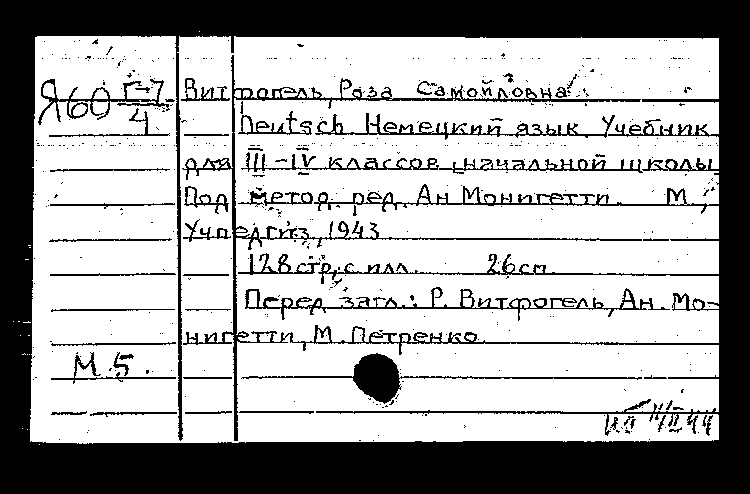 Я60 Г-7
4
Витфогель, Роза Самойловна.
Deutsch. Немецкий язык. Учебник
для III-IV классов начальной школы.
Под метод. ред. Ан Монигетти. М.,
Учпедгиз, 1943.
128 стр. с илл. 26 см.
Перед загл.: Р. Витфогель, Ан. Мо-
нигетти, М. Петренко.
М.5.